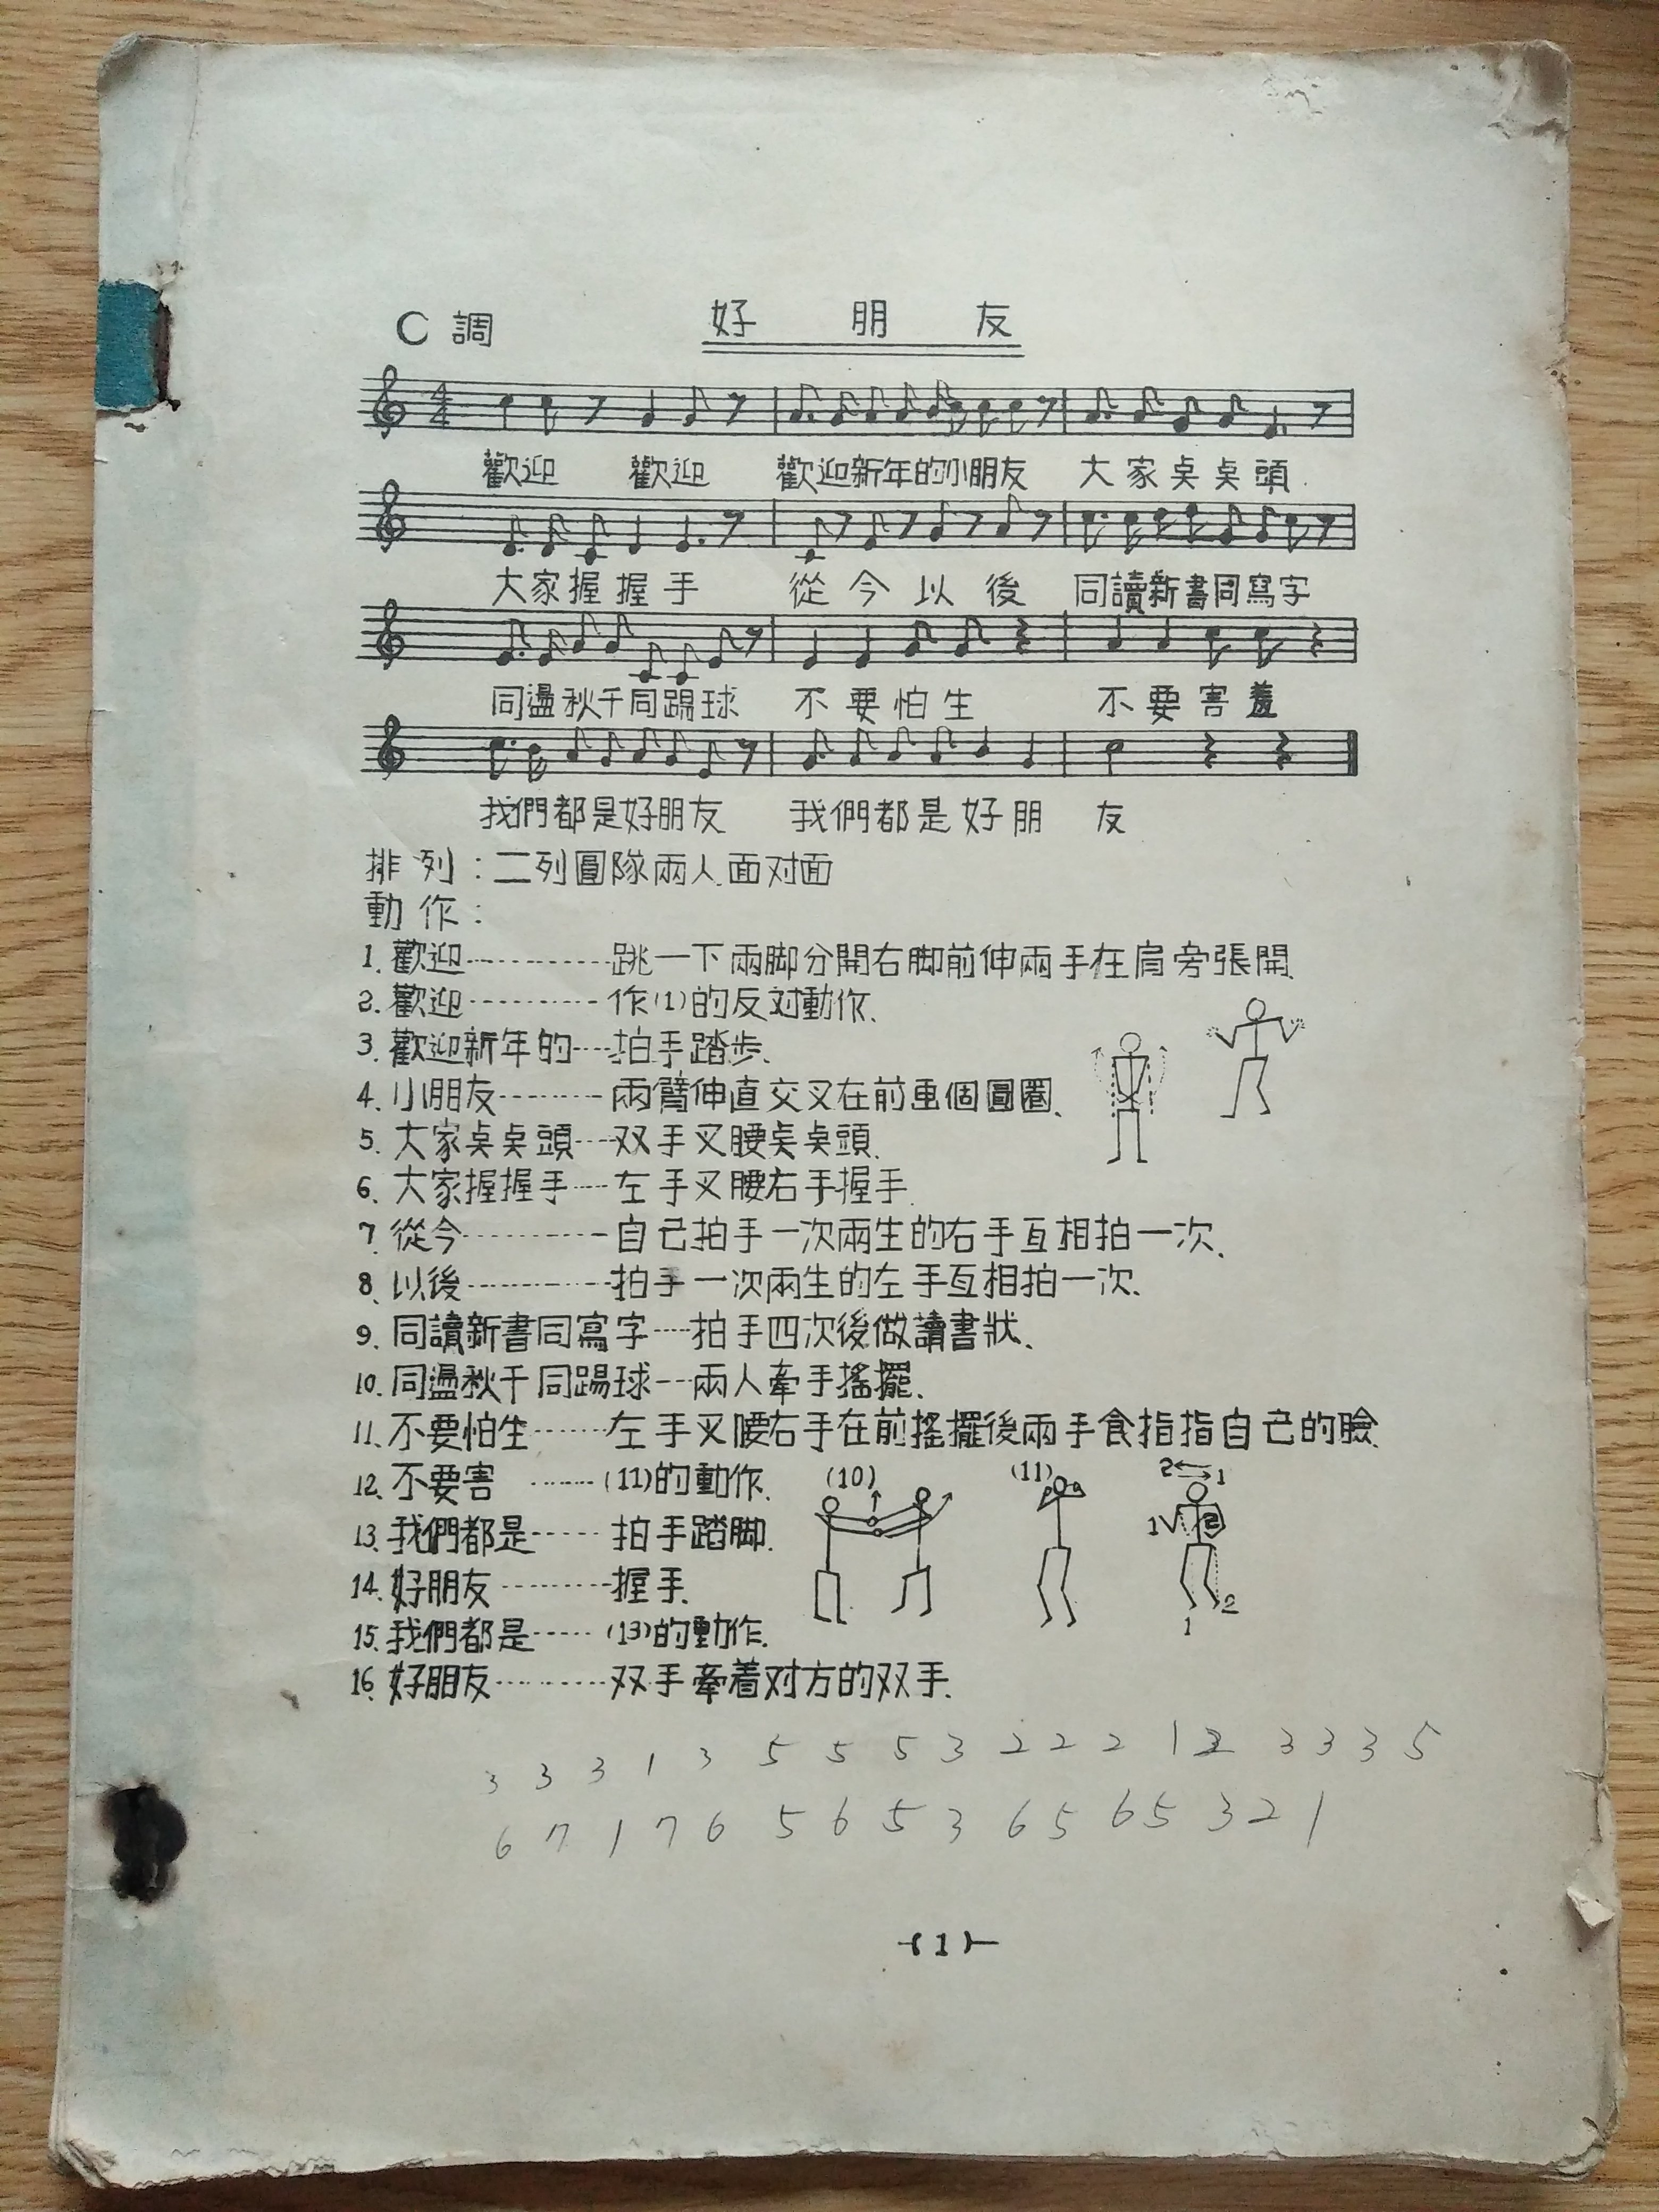 C 調
好朋友
4
4
歡迎 歡迎 歡迎新年的小朋友 大家奌奌頭
大家握握手 從今以後 同讀新書同寫字
同盪秋千同踢球 不要怕生 不要害羞
我們都是好朋友 我們都是好朋 友
排列：二列圓隊兩人面对面
動作：
1. 歡迎------------跳一下兩脚分開右脚前伸兩手在肩旁張開.
2. 歡迎----------作(1)的反対動作.
3. 歡迎新年的----拍手踏步.
4. 小朋友--------兩臂伸直交叉在前画個圓圈.
5. 大家奌奌頭----双手叉腰奌奌頭.
6. 大家握握手----左手叉腰右手握手.
7. 從今------------自己拍手一次兩生的右手互相拍一次.
8. 以後------------拍手一次兩生的左手互相拍一次.
9. 同讀新書同寫字----拍手四次後做讀書狀.
10. 同盪秋千同踢球---兩人牽手搖擺.
11. 不要怕生------左手叉腰右手在前搖擺後兩手食指指自己的臉.
12. 不要害 ------(11)的動作.
(10) (11) 2 1
13. 我們都是-----拍手踏脚.
1 2
14. 好朋友---------握手.
2
1
15. 我們都是-----(13)的動作.
16. 好朋友---------双手牽着对方的双手.
3 3 3 1 3 5 5 5 3 2 2 2 1 2 3 3 3 5
6 7 1 7 6 5 6 5 3 6 5 6 5 3 2 1
(1)